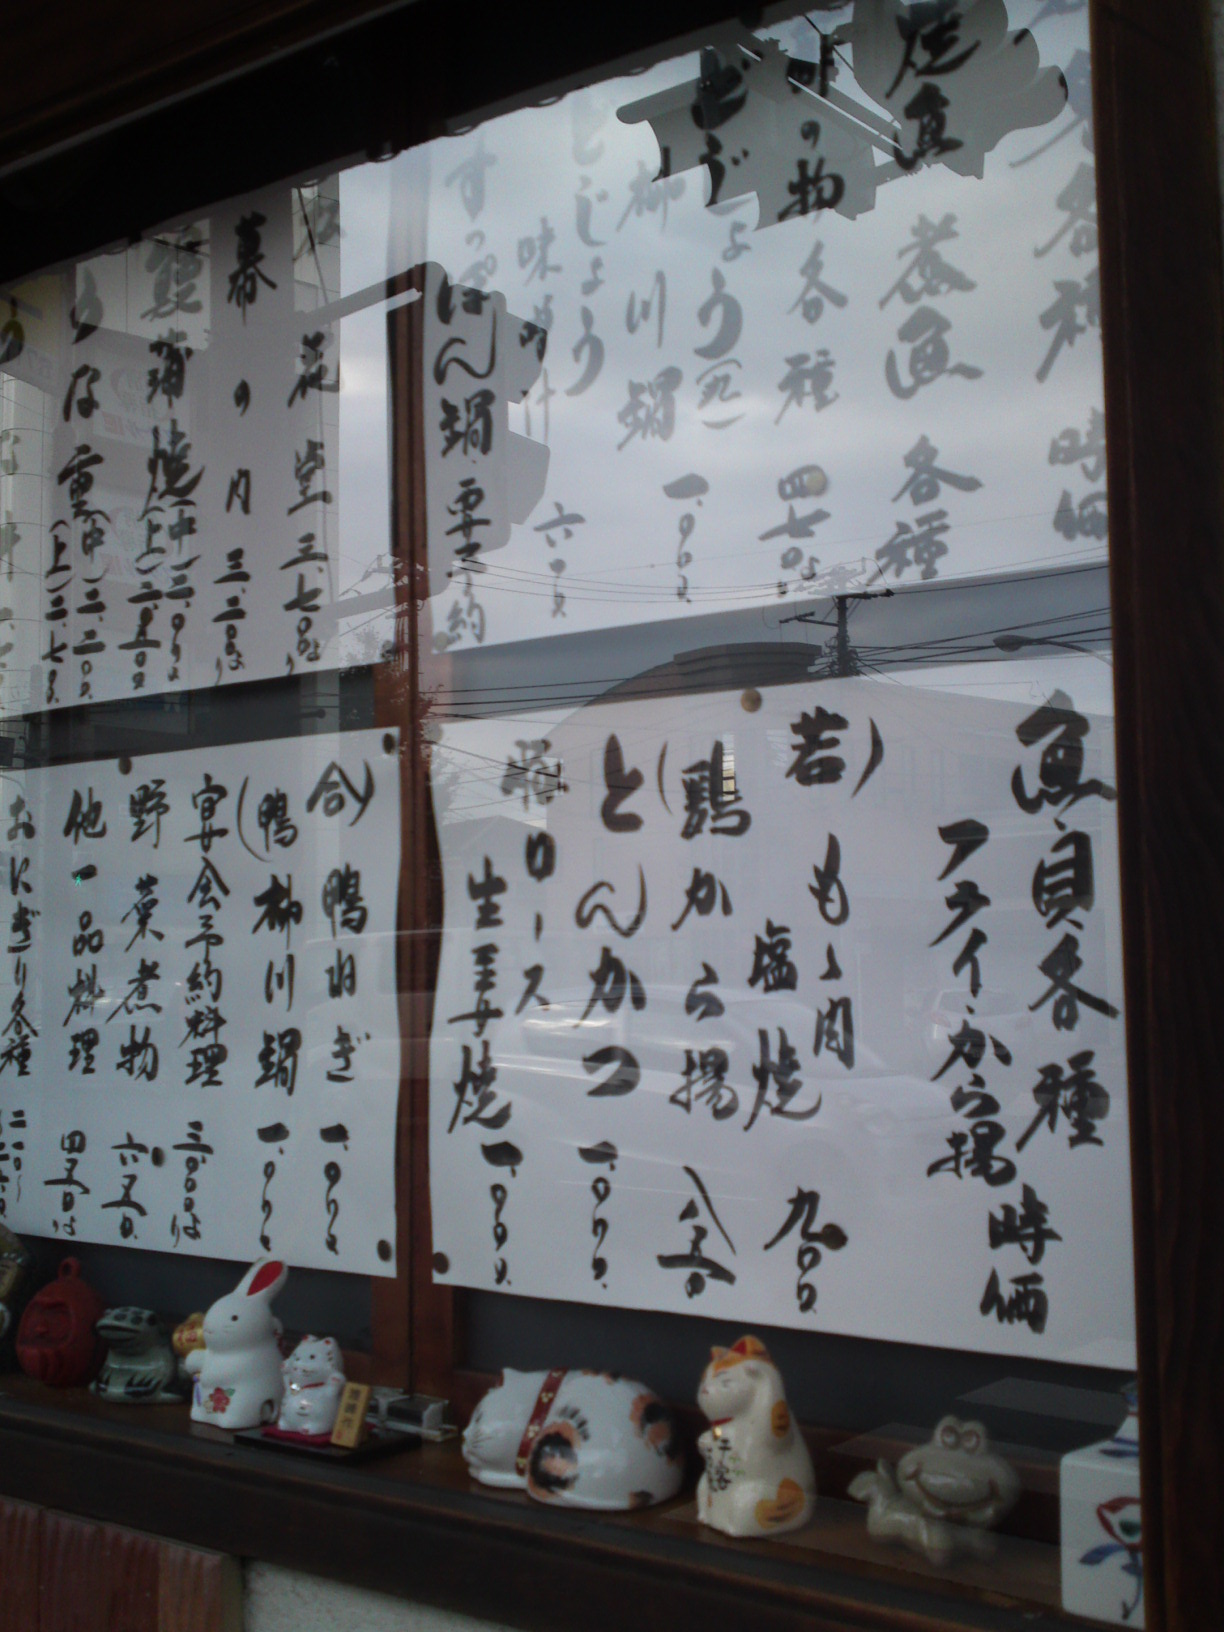 各種 時価
焼魚 煮魚 各種
の物各種 四七〇より
どじょう(丸)
柳川鍋 一、〇〇〇
どじょう
味噌汁 六〇〇
すっぽん鍋 要予約
松花堂 三、七〇〇より
幕の内 三、二〇〇より
蒲焼(中)二、〇〇〇
(上)二、五〇〇
うな重(中)二、二〇〇
(上)二、七〇〇
魚貝各種
フライ・から揚 時価
若)もゝ肉
塩焼 九〇〇
(鶏から揚 八五〇
とんかつ 一、〇〇〇
豚ロース
生姜焼 一、〇〇〇
合)鴨ねぎ 一、〇〇〇
(鴨柳川鍋 一、〇〇〇
宴会予約料理 三、〇〇〇より
野菜煮物 六五〇
他一品料理 四五〇より
おにぎり各種 二一〇〜